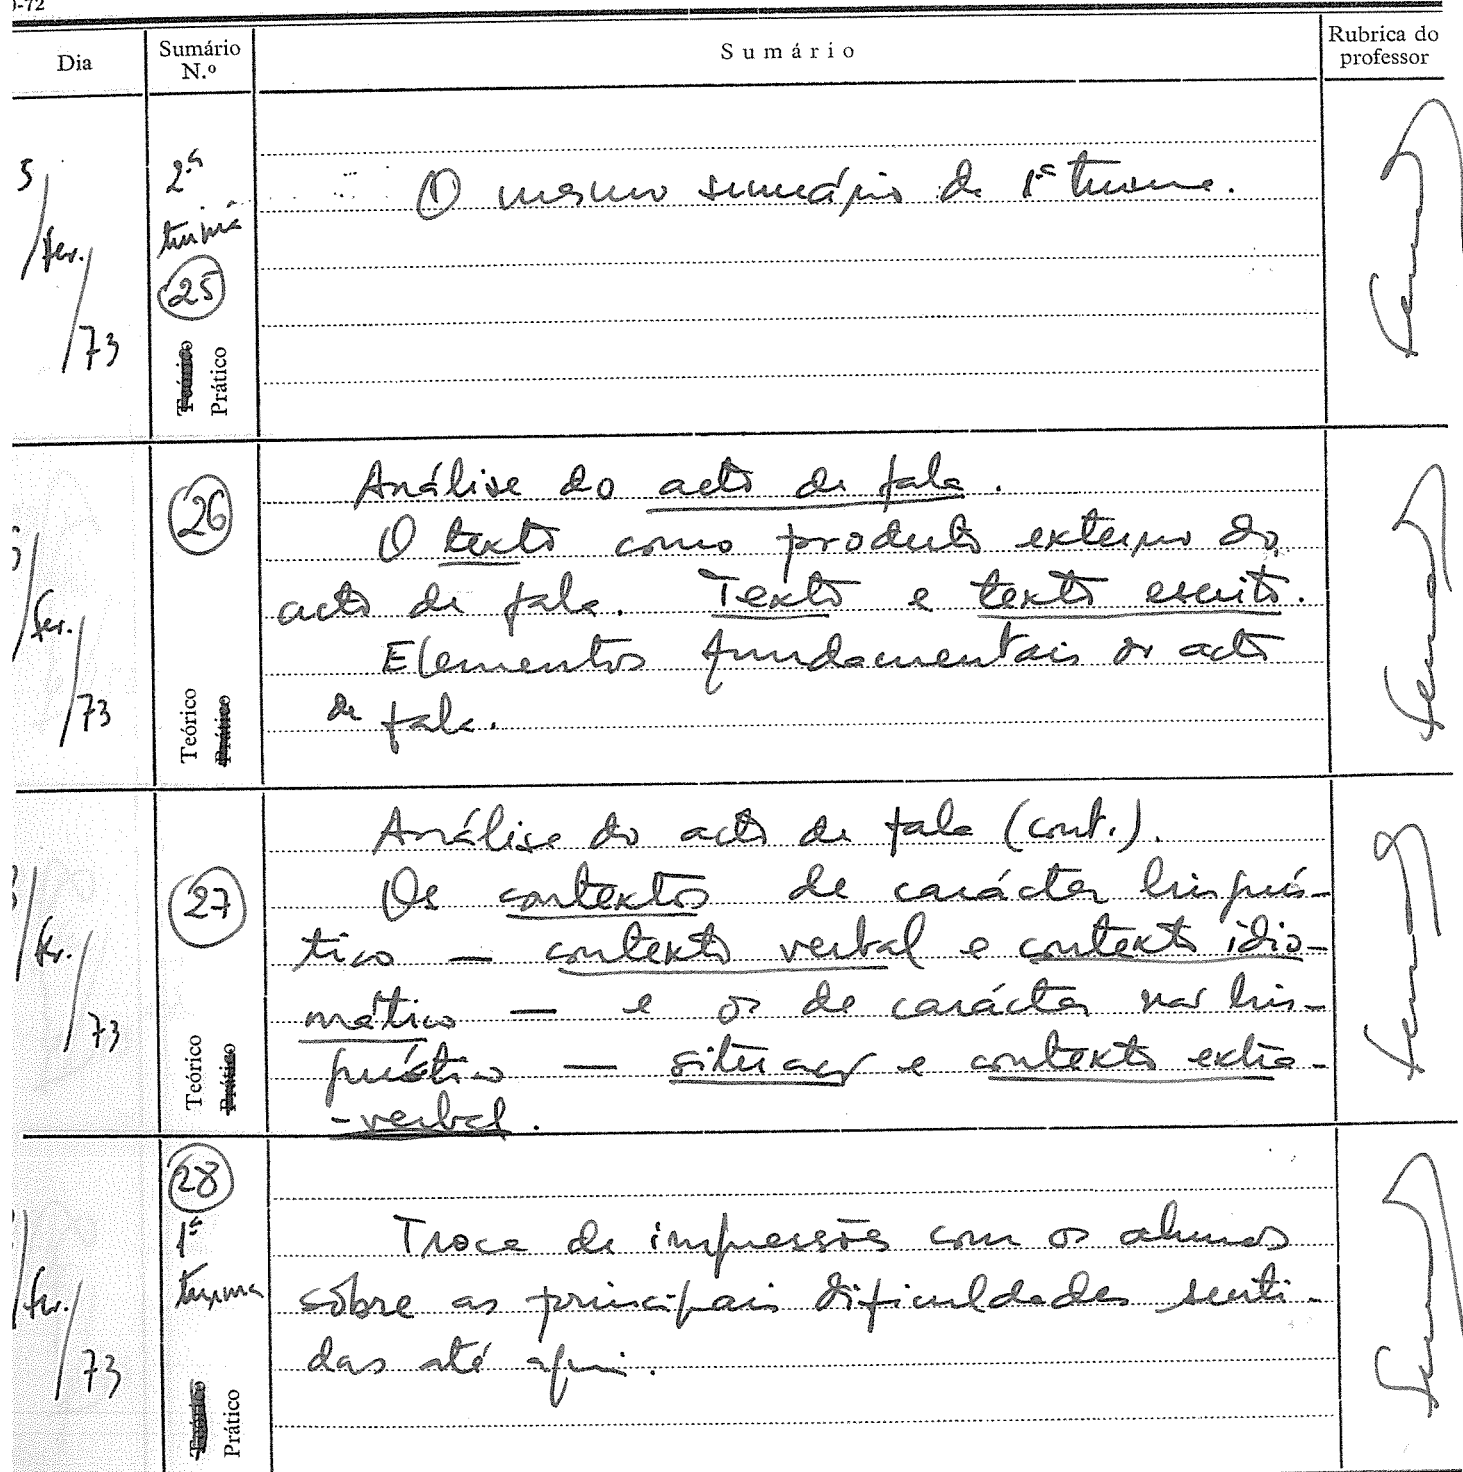 -72
Dia
Sumário
N.º
Sumário
Rubrica do
professor
5/fev./73
2.ª
turma
25
Teórico
Prático
O mesmo sumário da 1ª turma.
/fev./73
26
Teórico
Prático
Análise do acto de fala.
O texto como produto externo do
acto de fala. Texto e texto escrito.
Elementos fundamentais do acto
de fala.
/fev./73
27
Teórico
Prático
Análise do acto de fala (cont.).
Os contextos de carácter linguís-
tico — contexto verbal e contexto idio-
mático — e os de carácter não lin-
guístico — situação e contexto extra-
-verbal.
/fev./73
28
1ª
turma
Teórico
Prático
Troca de impressões com os alunos
sôbre as principais dificuldades senti-
das até aqui.